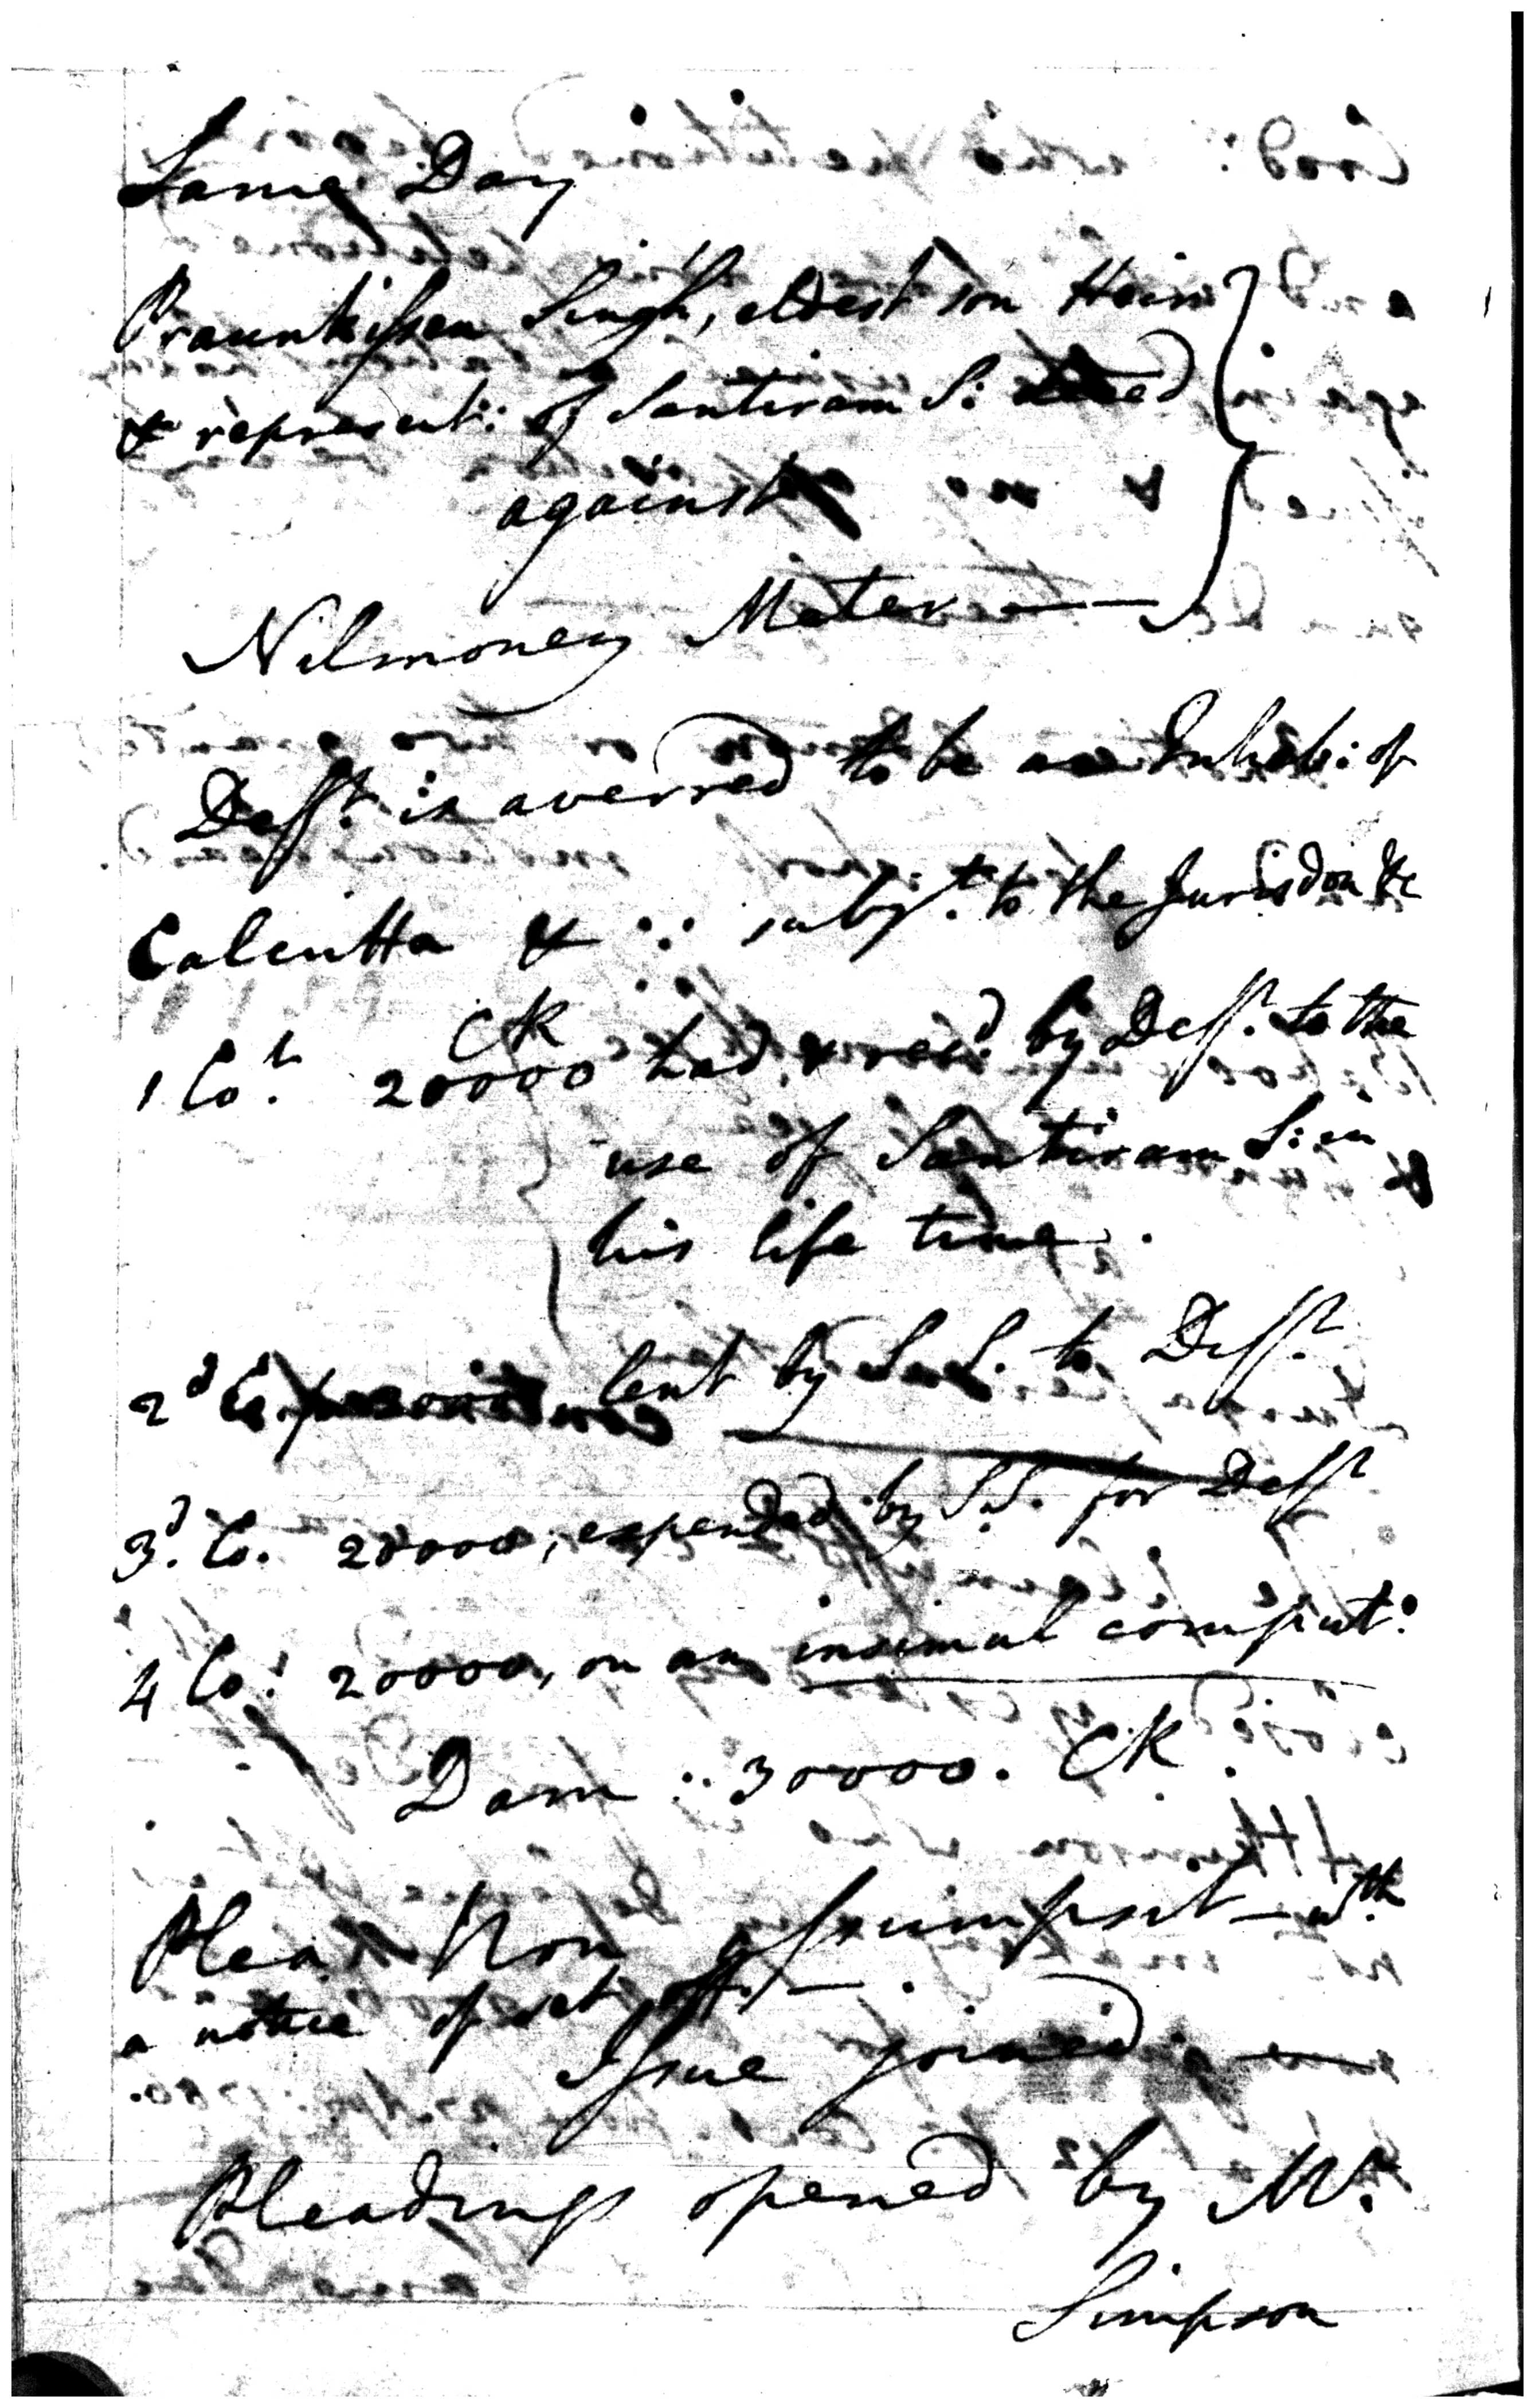 Same Day
Praunkissen Singh, eldest son Heir
& represent: of Santiram S: deced
against
Nilmoney Meter
Deft. is averred to be an Inhab: of
Calcutta & ∴ subjt. to the Jurisdon &c
CR
1 Cot. 20000 had & recd. by Deft. to the
use of Santiram S: in
his life time.
2d Co. lent by S. S. to Deft.
3d. Co. 20000, expended by S. S. for Deft
4 Co: 20000, on an insimul comput:
Dam: 30000. CR.
Plea Non assumpsit - wth.
a notice of set off. —
Issue joined —
Pleadings opened by Mr.
Simpson